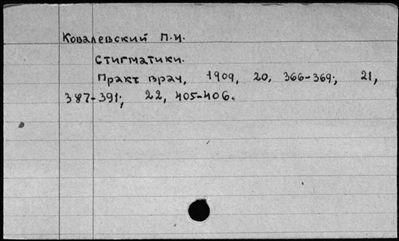 Ковалевский П.И.
Стигматики.
Практ врач, 1909, 20, 366-369; 21,
387-391; 22, 405-406.